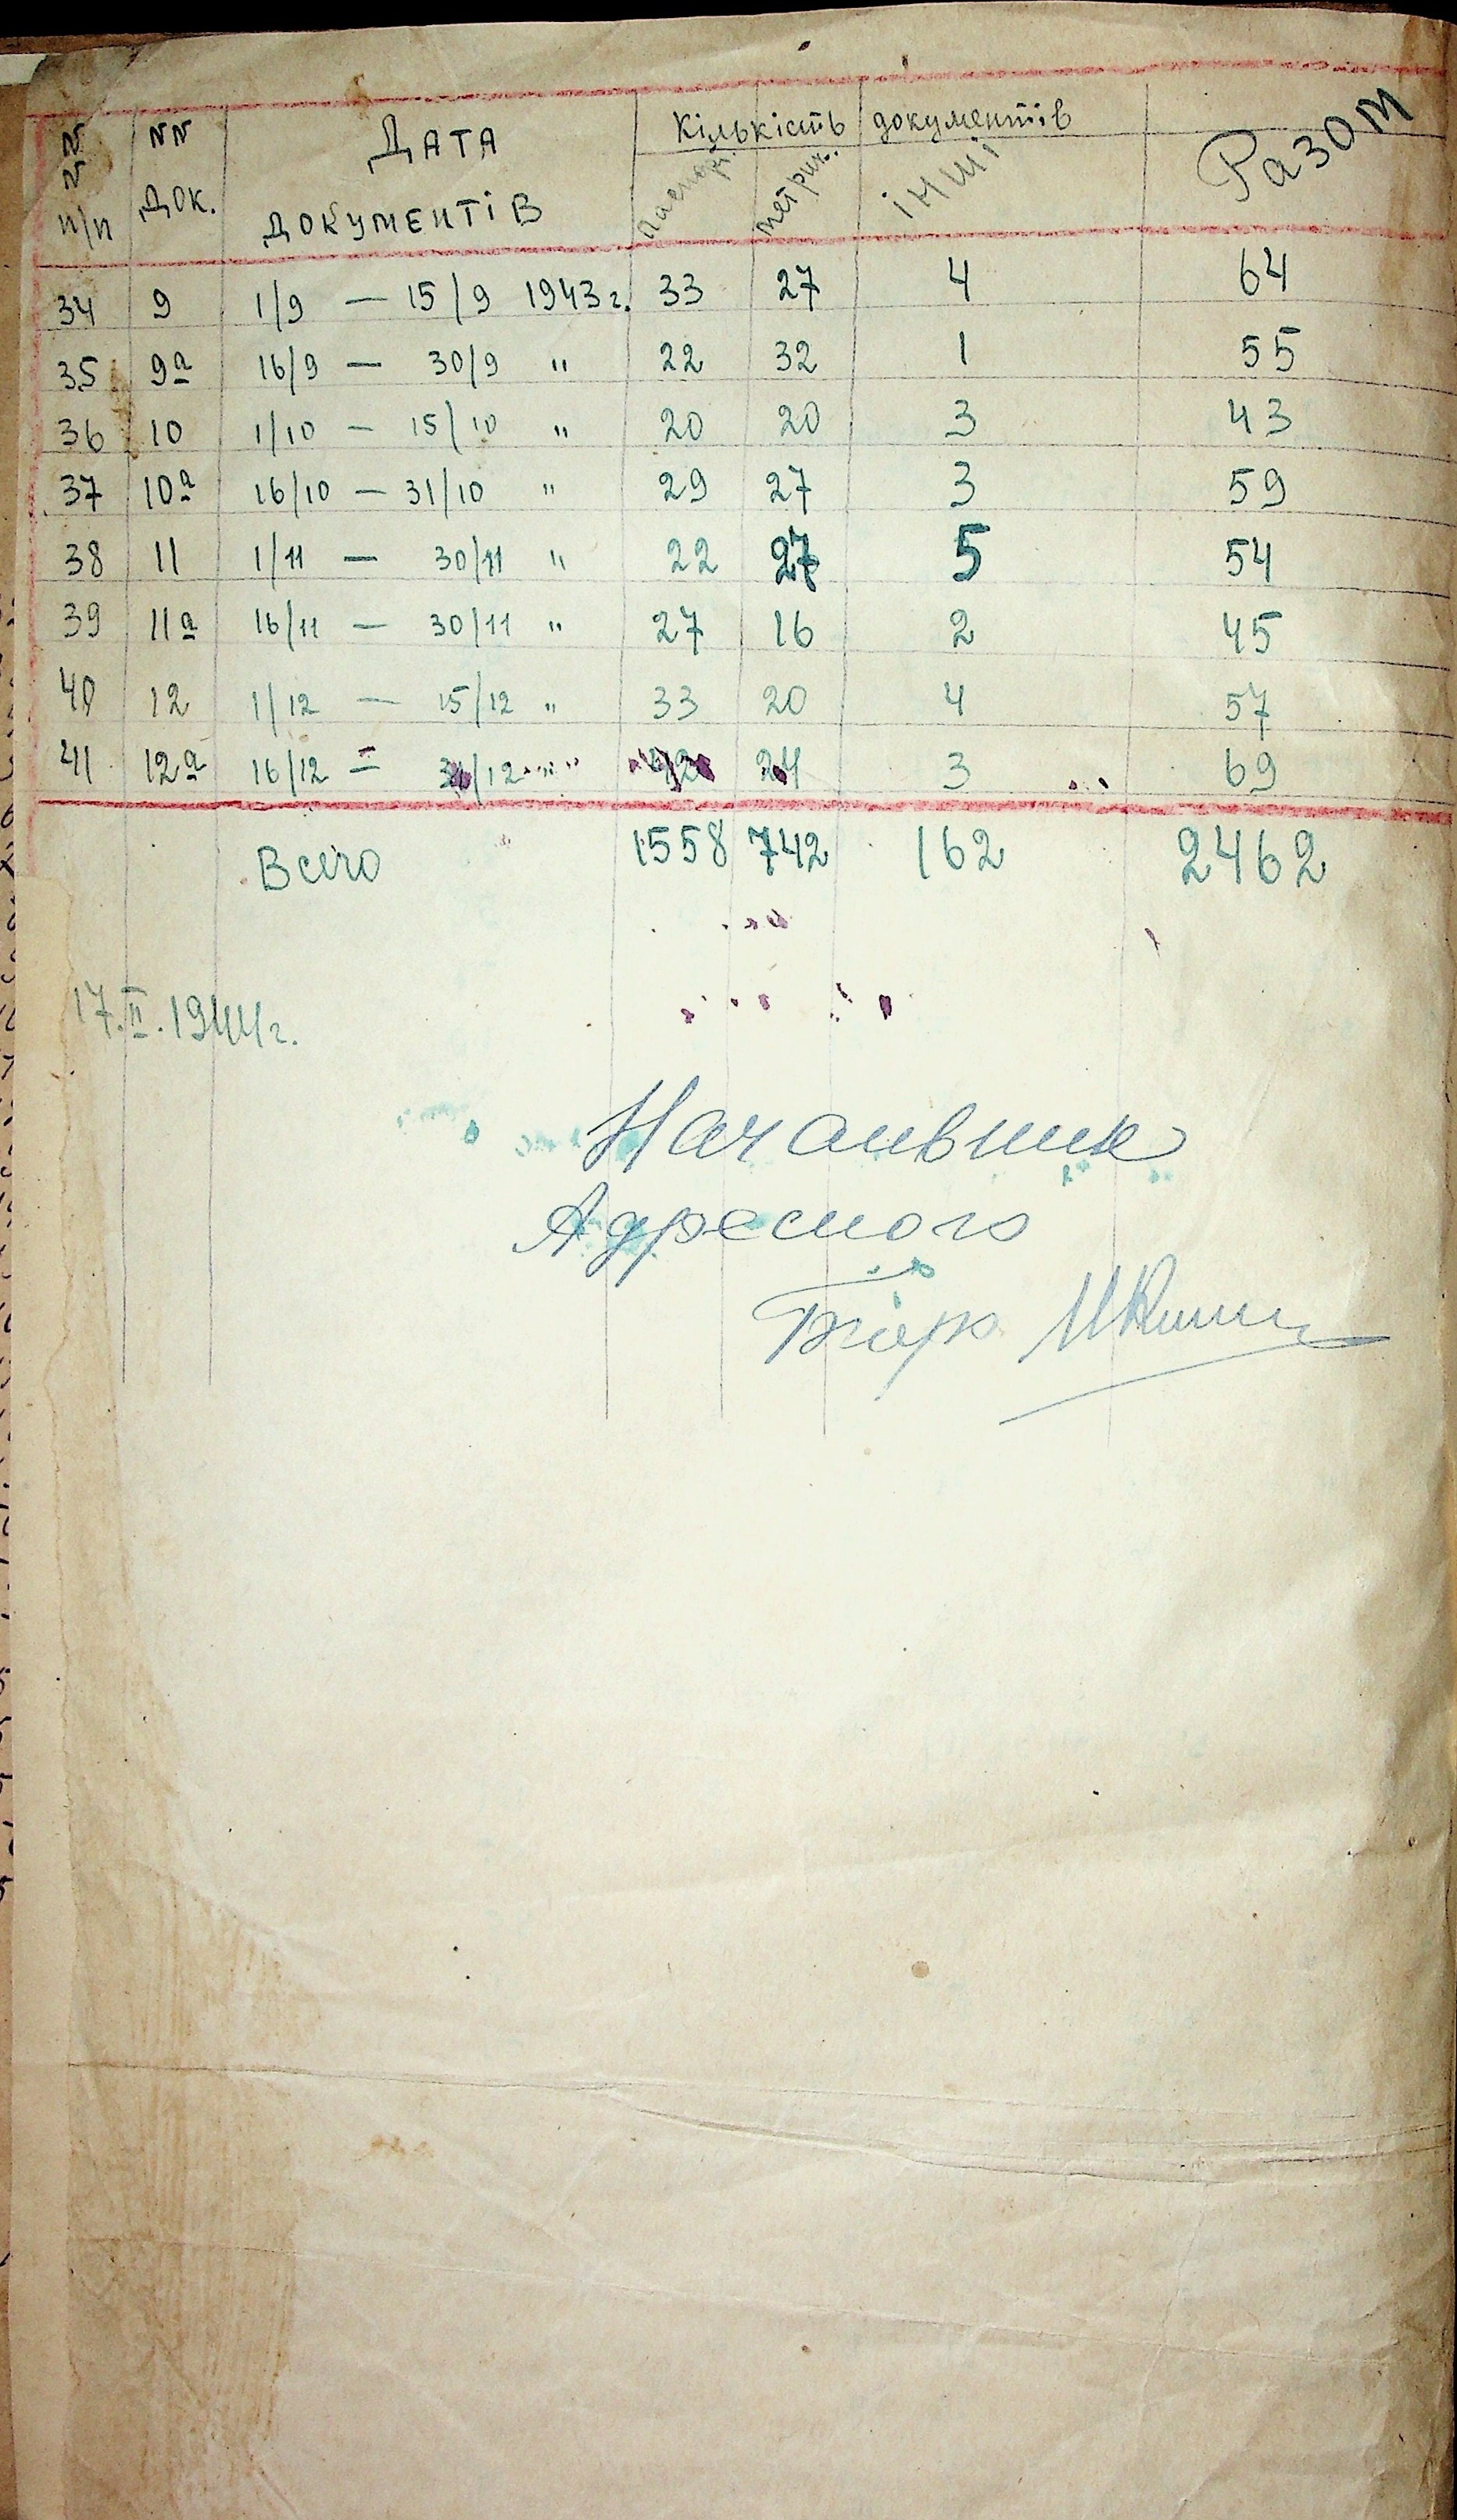 N N п/п NN ДОК. ДАТА ДОКУМЕНТІВ Кількість документів Разом
паспорт. метрич. інші
34 9 1/9 — 15/9 1943 г. 33 27 4 64
35 9а 16/9 — 30/9 " 22 32 1 55
36 10 1/10 — 15/10 " 20 20 3 43
37 10а 16/10 — 31/10 " 29 27 3 59
38 11 1/11 — 30/11 " 22 27 5 54
39 11а 16/11 — 30/11 " 27 16 2 45
40 12 1/12 — 15/12 " 33 20 4 57
41 12а 16/12 — 31/12 " 42 24 3 69
Всего 1558 742 162 2462
17.II.1944г.
Начальник
Адресного
Бюро